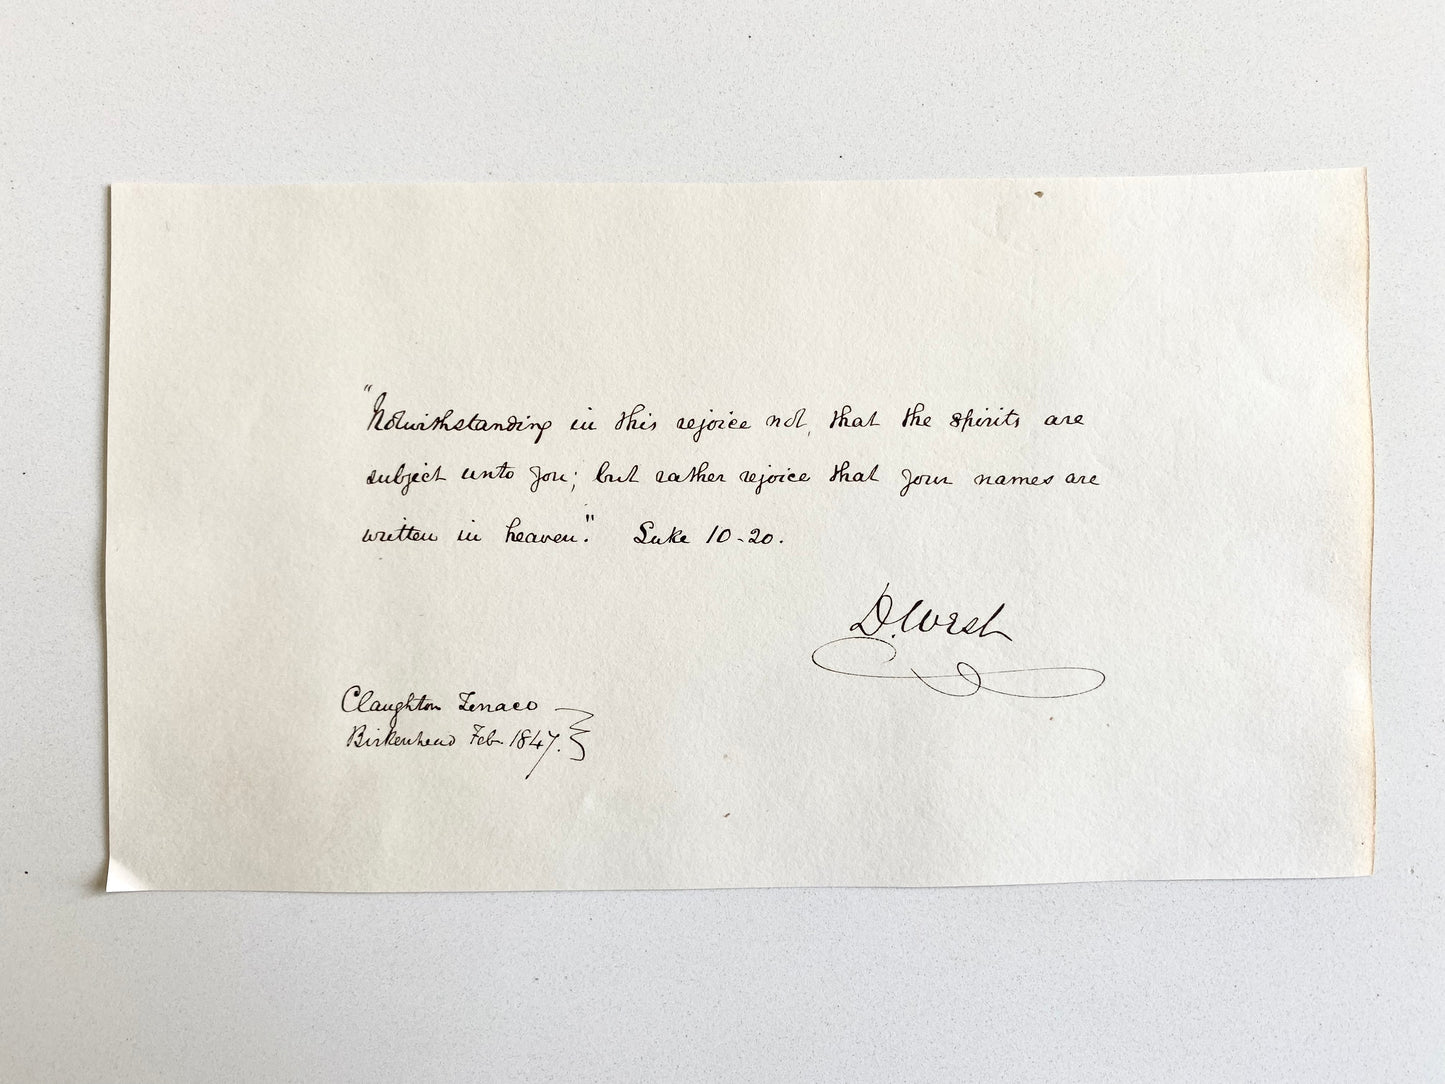 "Notwithstanding in this rejoice not, that the spirits are
subject unto you; but rather rejoice that your names are
written in heaven." Luke 10-20.
D. West
Claughton
Birkenhead Feb. 1847.